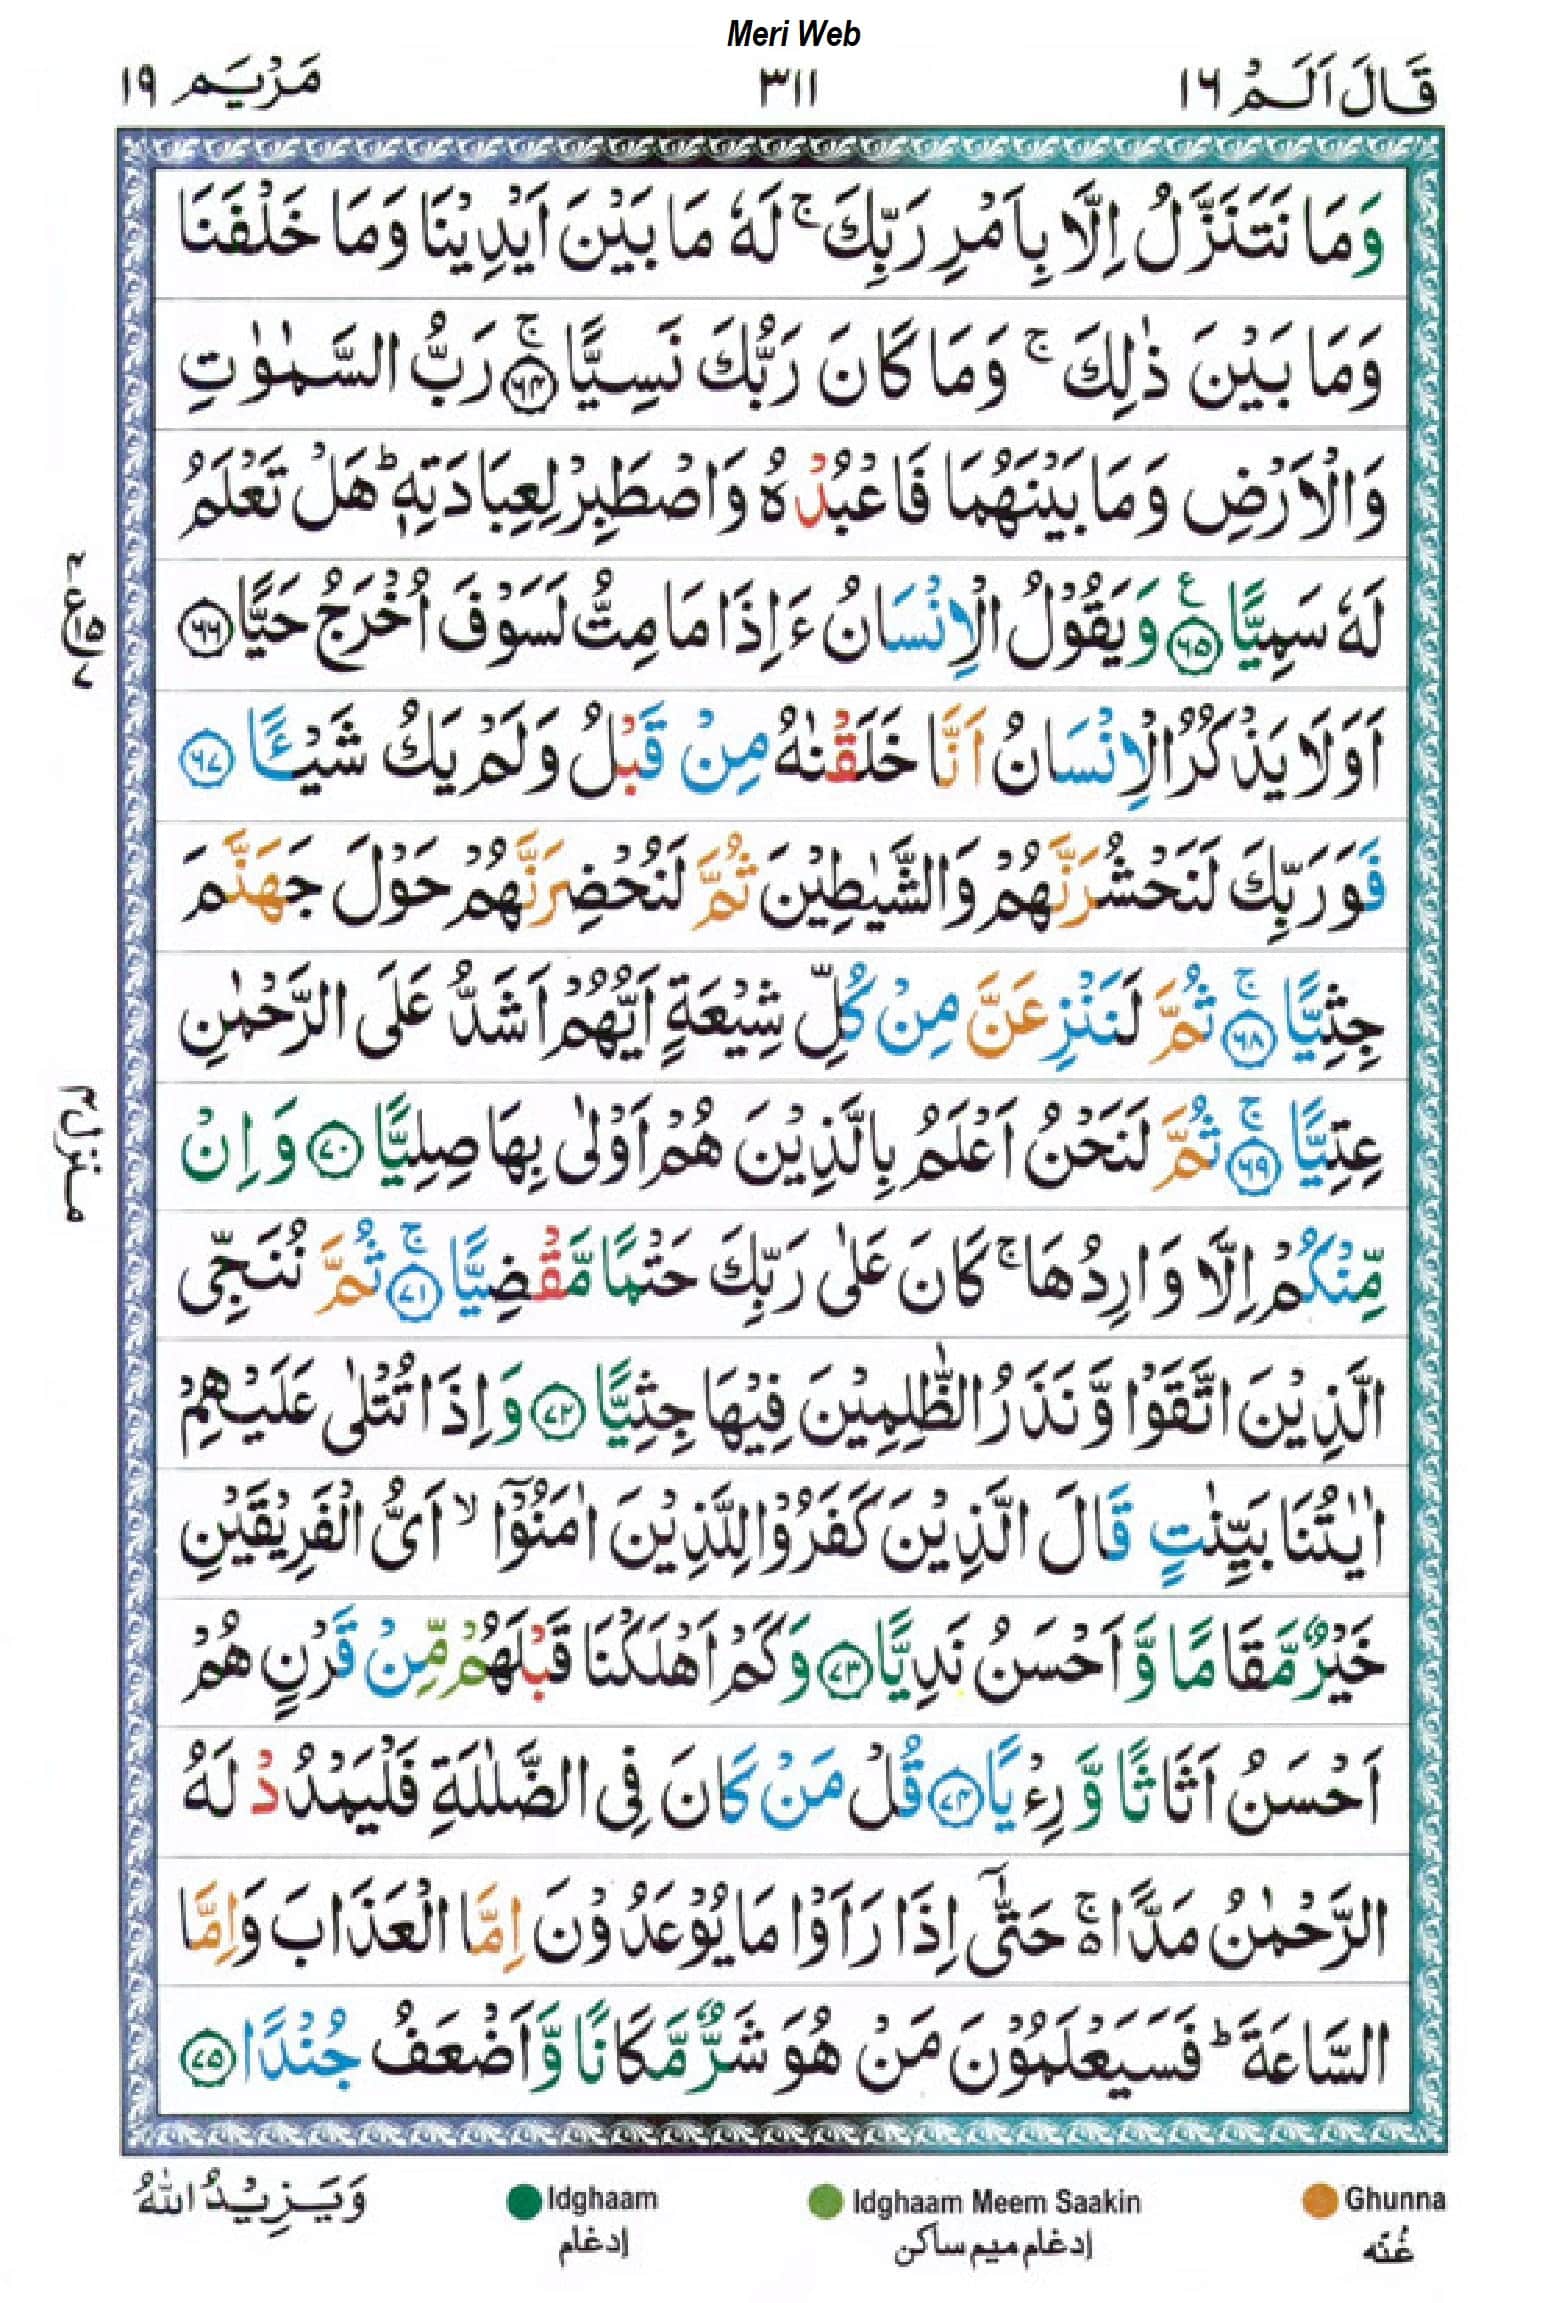 Meri Web
قَالَ اَلَمْ ١٦
٣١١
مَرْيَم ١٩
وَمَا نَتَنَزَّلُ اِلَّا بِاَمْرِ رَبِّكَ ۚ لَهٗ مَا بَيْنَ اَيْدِيْنَا وَمَا خَلْفَنَا
وَمَا بَيْنَ ذٰلِكَ ۚ وَمَا كَانَ رَبُّكَ نَسِيًّا ۚ ﴿٦٤﴾ رَبُّ السَّمٰوٰتِ
وَالْاَرْضِ وَمَا بَيْنَهُمَا فَاعْبُدْهُ وَاصْطَبِرْ لِعِبَادَتِهٖ ؕ هَلْ تَعْلَمُ
لَهٗ سَمِيًّا ﴿٦٥﴾ ع وَيَقُوْلُ الْاِنْسَانُ ءَاِذَا مَا مِتُّ لَسَوْفَ اُخْرَجُ حَيًّا ﴿٦٦﴾
اَوَلَا يَذْكُرُ الْاِنْسَانُ اَنَّا خَلَقْنٰهُ مِنْ قَبْلُ وَلَمْ يَكُ شَيْــًٔا ﴿٦٧﴾
فَوَرَبِّكَ لَنَحْشُرَنَّهُمْ وَالشَّيٰطِيْنَ ثُمَّ لَنُحْضِرَنَّهُمْ حَوْلَ جَهَنَّمَ
جِثِيًّا ۚ ﴿٦٨﴾ ثُمَّ لَنَنْزِعَنَّ مِنْ كُلِّ شِيْعَةٍ اَيُّهُمْ اَشَدُّ عَلَى الرَّحْمٰنِ
عِتِيًّا ۚ ﴿٦٩﴾ ثُمَّ لَنَحْنُ اَعْلَمُ بِالَّذِيْنَ هُمْ اَوْلٰى بِهَا صِلِيًّا ﴿٧٠﴾ وَاِنْ
مِّنْكُمْ اِلَّا وَارِدُهَا ۚ كَانَ عَلٰى رَبِّكَ حَتْمًا مَّقْضِيًّا ۚ ﴿٧١﴾ ثُمَّ نُنَجِّى
الَّذِيْنَ اتَّقَوْا وَّنَذَرُ الظّٰلِمِيْنَ فِيْهَا جِثِيًّا ﴿٧٢﴾ وَاِذَا تُتْلٰى عَلَيْهِمْ
اٰيٰتُنَا بَيِّنٰتٍ قَالَ الَّذِيْنَ كَفَرُوْا لِلَّذِيْنَ اٰمَنُوْۤا ۙ اَىُّ الْفَرِيْقَيْنِ
خَيْرٌ مَّقَامًا وَّاَحْسَنُ نَدِيًّا ﴿٧٣﴾ وَكَمْ اَهْلَكْنَا قَبْلَهُمْ مِّنْ قَرْنٍ هُمْ
اَحْسَنُ اَثَاثًا وَّرِءْيًا ﴿٧٤﴾ قُلْ مَنْ كَانَ فِى الضَّلٰلَةِ فَلْيَمْدُدْ لَهُ
الرَّحْمٰنُ مَدًّا ۚ۬ حَتّٰٓى اِذَا رَاَوْا مَا يُوْعَدُوْنَ اِمَّا الْعَذَابَ وَاِمَّا
السَّاعَةَ ؕ فَسَيَعْلَمُوْنَ مَنْ هُوَ شَرٌّ مَّكَانًا وَّاَضْعَفُ جُنْدًا ﴿٧٥﴾
منزل ٤
وَيَزِيْدُ اللّٰهُ
Idghaam
إدغام
Idghaam Meem Saakin
إدغام ميم ساكن
Ghunna
غُنّه